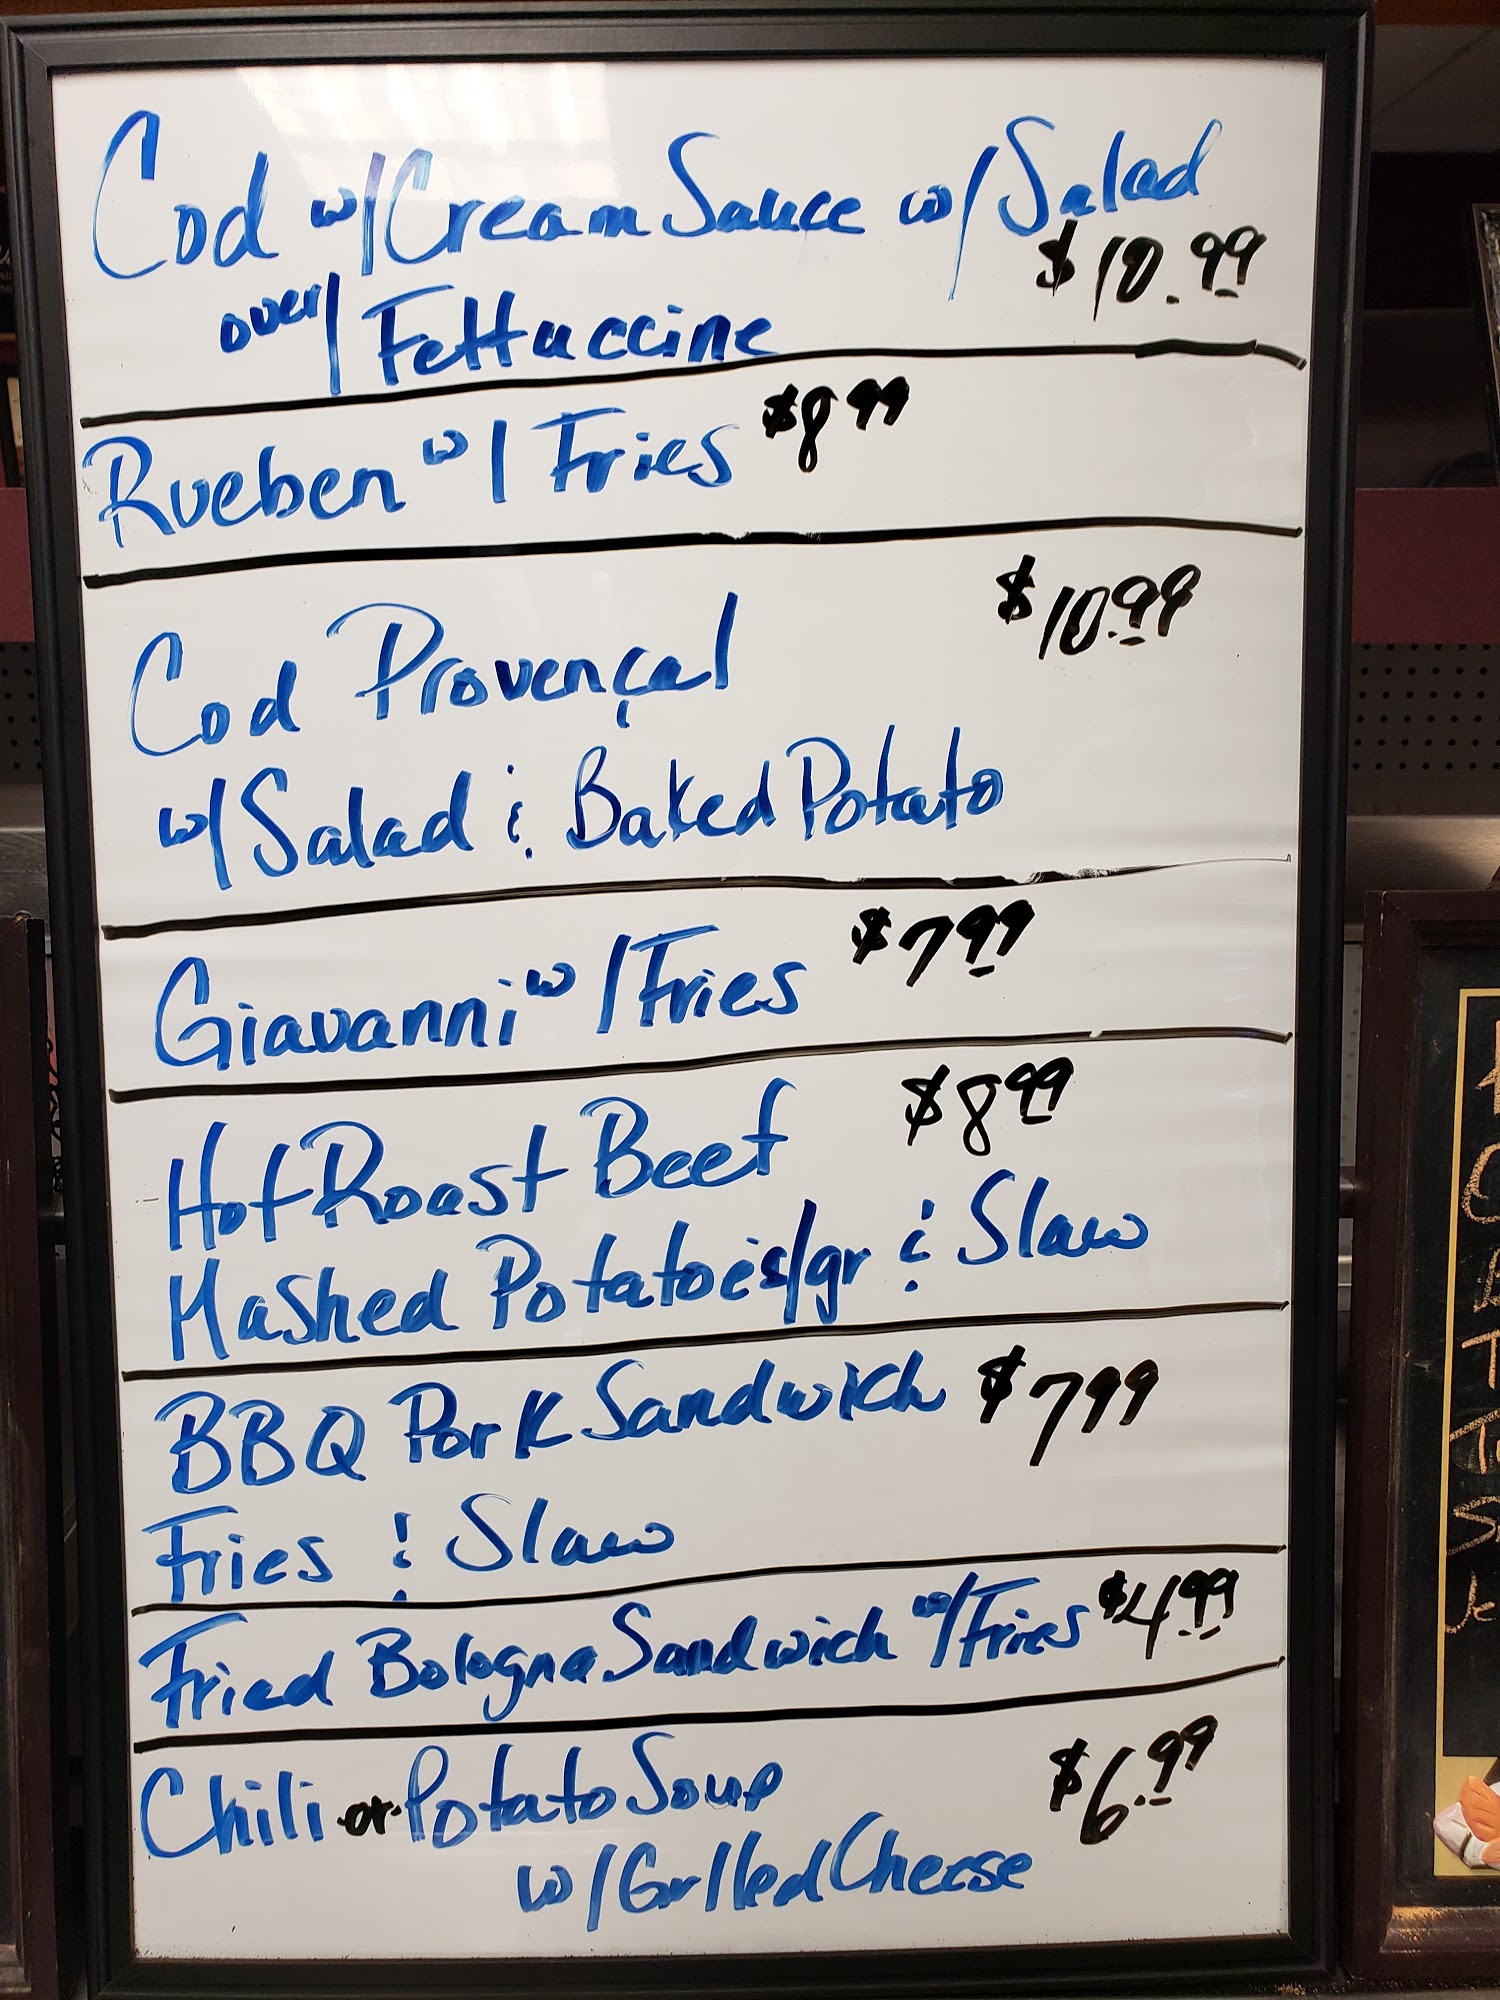 Cod w/Cream Sauce w/Salad
$10.99
over/ Fettuccine
Rueben w/ Fries $8.99
$10.99
Cod Provençal
w/Salad & Baked Potato
Giavanni w/Fries $7.99
Hot Roast Beef $8.99
Mashed Potatoes/gr & Slaw
BBQ Pork Sandwich $7.99
Fries & Slaw
Fried Bologna Sandwich w/Fries $4.99
Chili or Potato Soup $6.99
w/Grilled Cheese